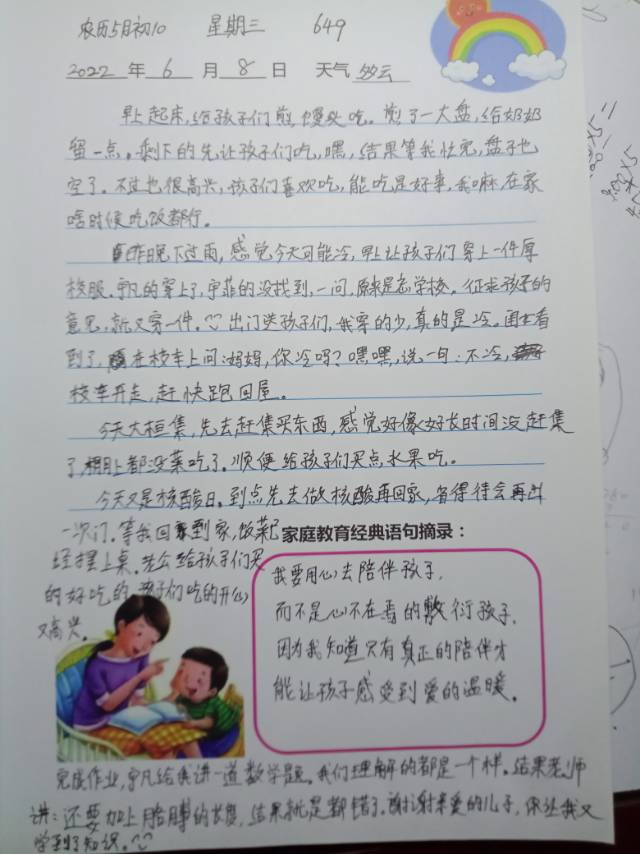 农历5月初10 星期三 649
2022 年 6 月 8 日 天气 多云
早上起床,给孩子们煎馒头吃。煎了一大盘,给奶奶
留一点。剩下的先让孩子们吃,嘿,结果等我忙完,盘子也
空了。不过也很高兴,孩子们喜欢吃,能吃是好事,我嘛,在家
啥时候吃饭都行。
昨晚下过雨,感觉今天可能冷,早上让孩子们穿上一件厚
校服。宇凡的穿上了,宇菲的没找到,一问,原来是忘学校。征求孩子的
意见,就又穿一件。出门送孩子们,我穿的少,真的是冷。闺女看
到了,在校车上问:妈妈,你冷吗?嘿嘿,说一句:不冷,
校车开走,赶快跑回屋。
今天大桓集,先去赶集买东西,感觉好像好长时间没赶集
了,棚上都没菜吃了。顺便给孩子们买点水果吃。
今天又是核酸日。到点先去做核酸再回家,省得待会再出
一次门。等我回到家,饭菜已
经摆上桌。老公给孩子们买
的好吃的,孩子们吃的开心
又高兴。
家庭教育经典语句摘录:
我要用心去陪伴孩子,
而不是心不在焉的敷衍孩子,
因为我知道只有真正的陪伴才
能让孩子感受到爱的温暖。
完成作业,宇凡给我讲一道数学题。我们理解的都是一个样。结果老师
讲:还要加上胳膊的长度,结果就是都错了。谢谢亲爱的儿子,你让我又
学到了知识。